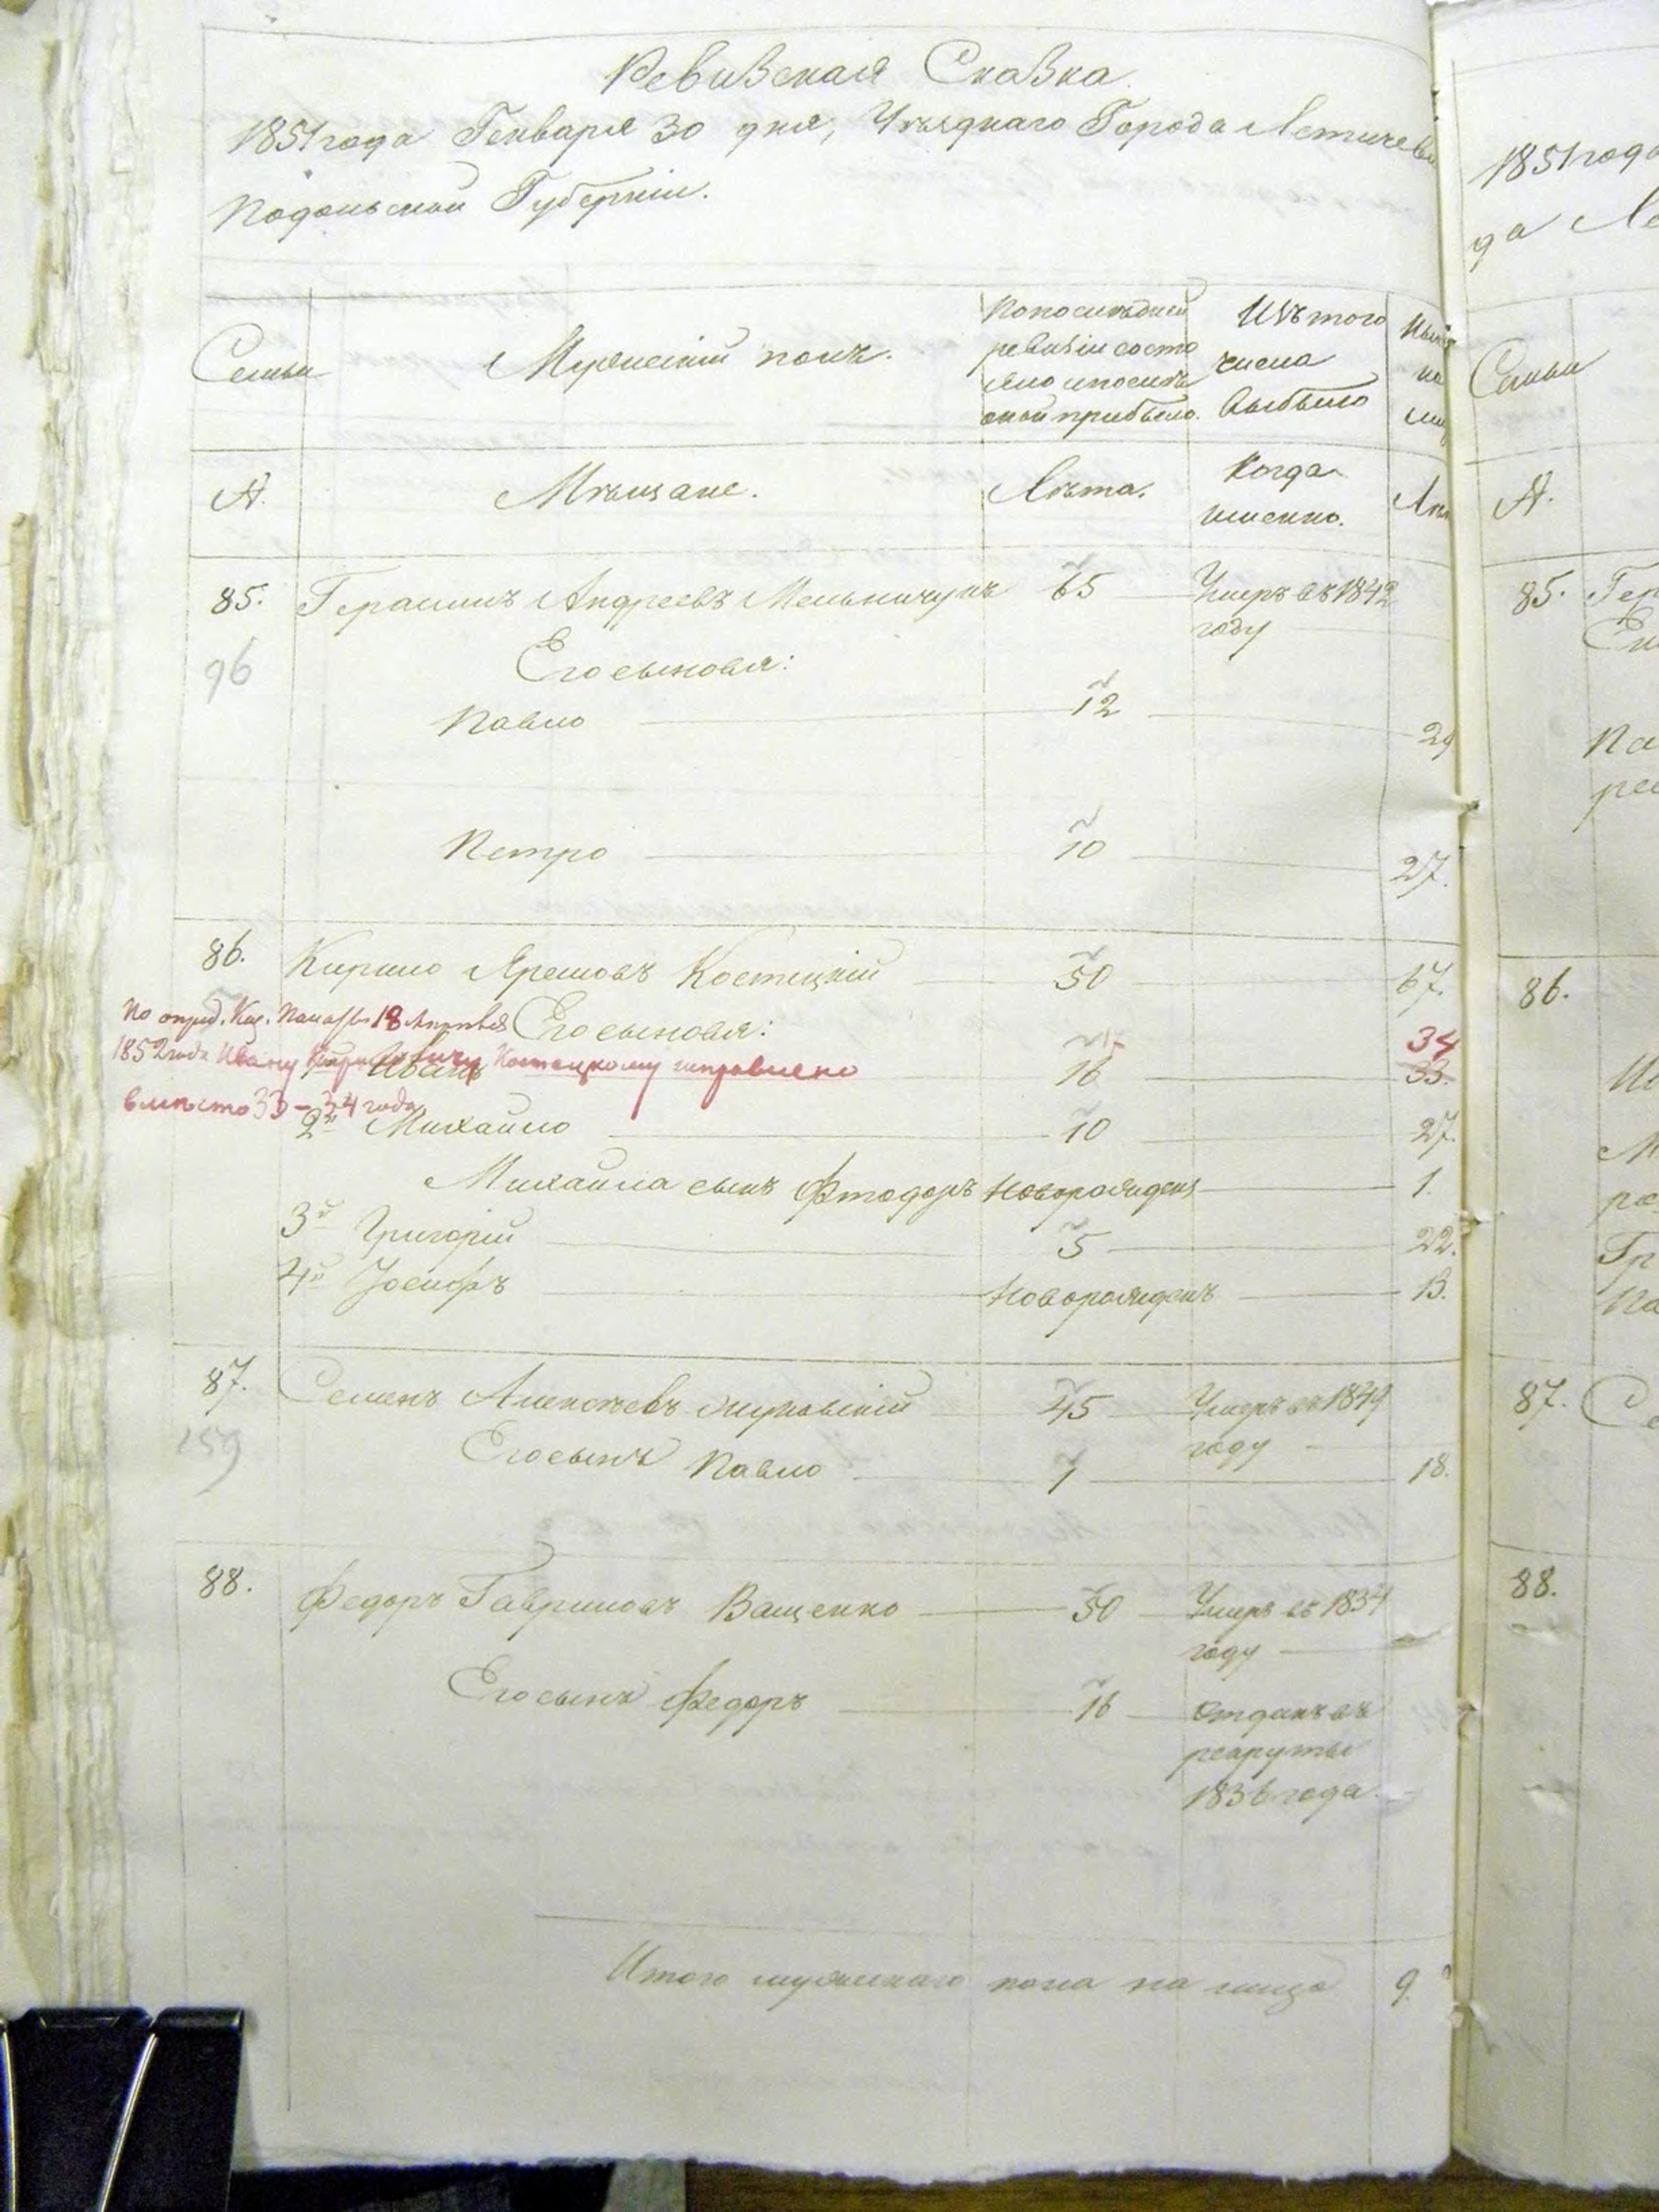 Ревизская Сказка.
1851 года Генваря 30 дня, Уѣзднаго Города Летичева
Подольской Губерніи.
Семьи
Мужескій полъ.
По последней ревизіи состояло и после оной прибыло.
Изъ того числа выбыло
А.
Мѣщане.
Лѣта.
Когда именно.
85. Герасимъ Андреевъ Мельничукъ 65 Умеръ въ 1842 году
96
Его сыновья:
Павло 12 29
Петро 10 27.
86. Кирило Яремовъ Костецкій 50 67.
По опред. Каз. Палаты 18
1852 года Ивану Кириловичу Костецкому исправлено
вместо 33 – 34 года
Его сыновья: 34
Иванъ 16 33.
2й Михайло 10 27.
Михайла сынъ Фтодоръ новорожденъ 1.
3й Григорій 5 22.
4й Іосифъ новорожденъ 13.
87. Семенъ Алексѣевъ 45 Умеръ въ 1849 году
159
Его сынъ Павло 1 18.
88. Федоръ Гавриловъ Ващенко 50 Умеръ въ 1834 году
Его сынъ Федоръ 16 Отданъ въ рекруты 1836 года.
Итого мужескаго пола на лицо 9.
1851 года
да Ле
Семьи
А.
85. Гер
Па
86.
Гр
87. Се
88.